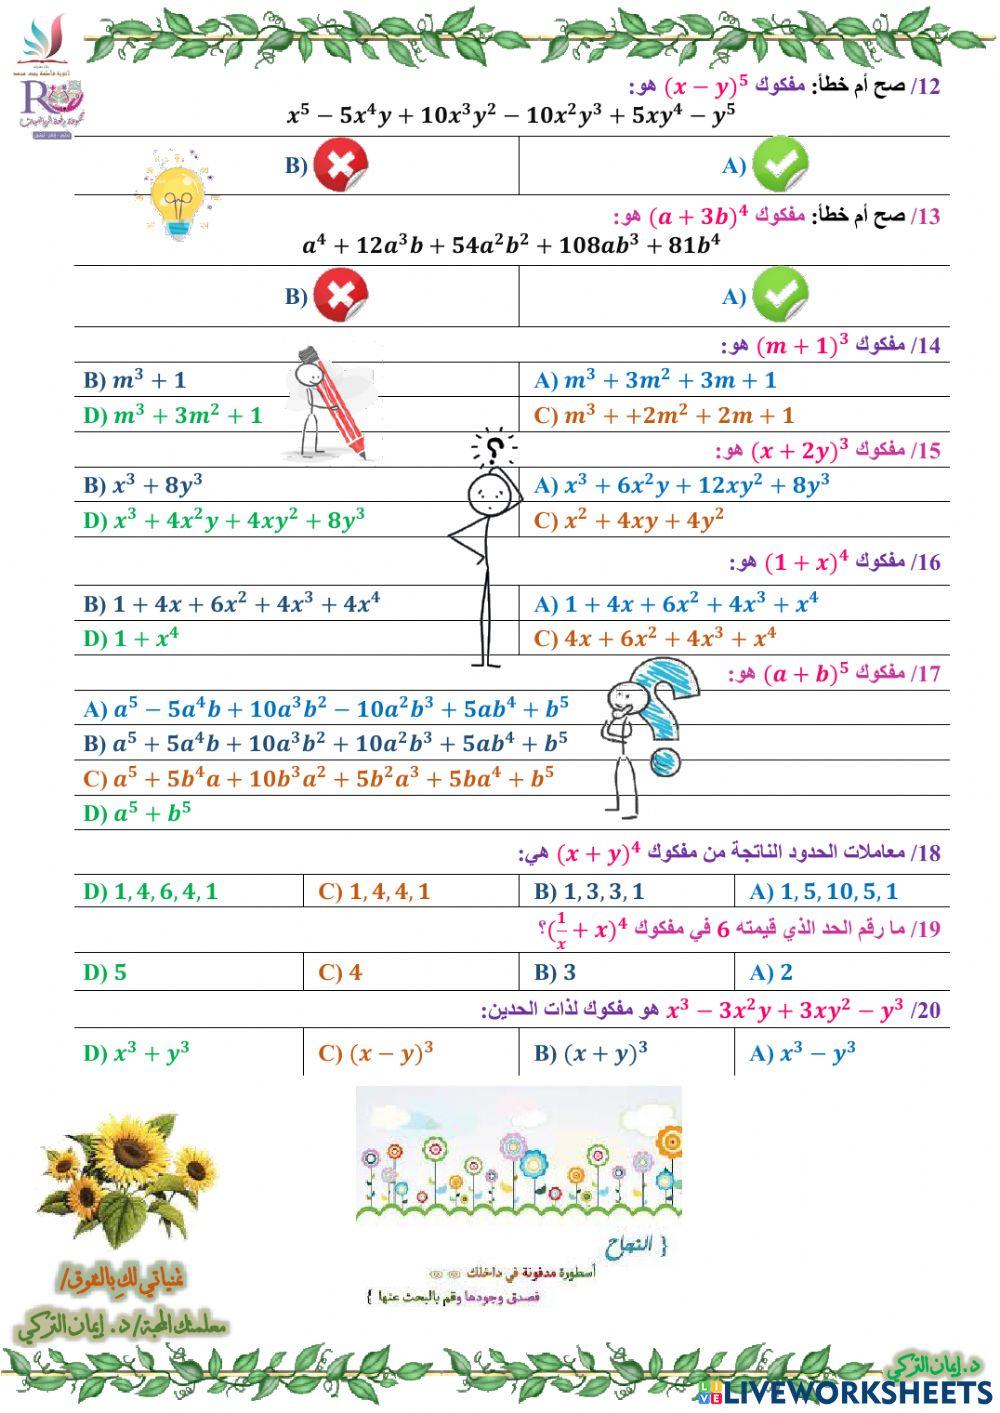 12/ صح أم خطأ: مفكوك (x − y)⁵ هو:
x⁵ − 5x⁴y + 10x³y² − 10x²y³ + 5xy⁴ − y⁵
A) B)
13/ صح أم خطأ: مفكوك (a + 3b)⁴ هو:
a⁴ + 12a³b + 54a²b² + 108ab³ + 81b⁴
A) B)
14/ مفكوك (m + 1)³ هو:
A) m³ + 3m² + 3m + 1 B) m³ + 1
C) m³ + +2m² + 2m + 1 D) m³ + 3m² + 1
15/ مفكوك (x + 2y)³ هو:
A) x³ + 6x²y + 12xy² + 8y³ B) x³ + 8y³
C) x² + 4xy + 4y² D) x³ + 4x²y + 4xy² + 8y³
16/ مفكوك (1 + x)⁴ هو:
A) 1 + 4x + 6x² + 4x³ + x⁴ B) 1 + 4x + 6x² + 4x³ + 4x⁴
C) 4x + 6x² + 4x³ + x⁴ D) 1 + x⁴
17/ مفكوك (a + b)⁵ هو:
A) a⁵ − 5a⁴b + 10a³b² − 10a²b³ + 5ab⁴ + b⁵
B) a⁵ + 5a⁴b + 10a³b² + 10a²b³ + 5ab⁴ + b⁵
C) a⁵ + 5b⁴a + 10b³a² + 5b²a³ + 5ba⁴ + b⁵
D) a⁵ + b⁵
18/ معاملات الحدود الناتجة من مفكوك (x + y)⁴ هي:
A) 1, 5, 10, 5, 1 B) 1, 3, 3, 1 C) 1, 4, 4, 1 D) 1, 4, 6, 4, 1
19/ ما رقم الحد الذي قيمته 6 في مفكوك (1/x + x)⁴؟
A) 2 B) 3 C) 4 D) 5
20/ x³ − 3x²y + 3xy² − y³ هو مفكوك لذات الحدين:
A) x³ − y³ B) (x + y)³ C) (x − y)³ D) x³ + y³
{ النجاح
أسطورة مدفونة في داخلك
فصدق وجودها وقم بالبحث عنها }
تمنياتي لكِ بالتفوق/
معلمتك المحبة/د. إيمان التركي
د. إيمان التركي
LIVEWORKSHEETS